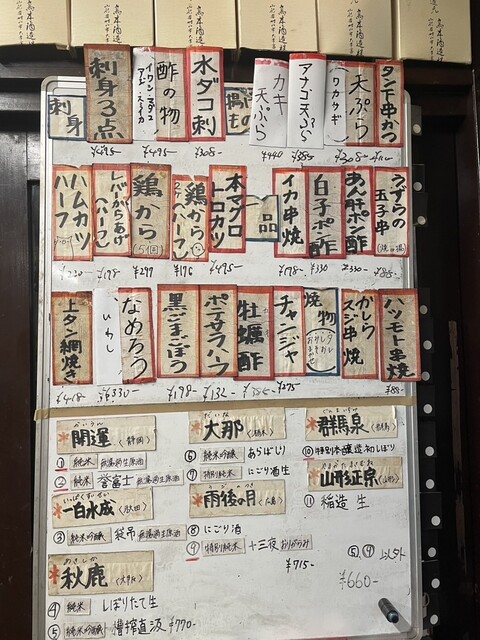 刺身
刺身3点
¥695
酢の物
¥495
水ダコ刺
¥308
揚げもの
カキ天ぷら
¥440
アナゴ天ぷら
¥385
天ぷら
(ワカサギ)
¥308
タン下串かつ
ハムカツハーフ
¥220
レバーからあげ(ハーフ)
¥198
鶏から
(5個)
¥297
鶏からハーフ
¥176
本マグロトロカツ
¥495
一品
イカ串焼
¥198
白子ポン酢
¥330
あん肝ポン酢
¥330
うずらの玉子串
上タン網焼き
¥418
いわし
なめろう
¥330
黒ごまごぼう
¥198
ポテサラハーフ
¥132
牡蠣酢
チャンジャ
¥275
焼物
かしらスジ串焼
ハツモト串焼
¥88
かいうん
*開運〈静岡〉
① 純米 無濾過生原酒
② 純米 誉富士 無濾過生原酒
いっぱくすいせい
*一白水成〈秋田〉
③ 純米吟醸 袋吊 無濾過生原酒
あきしか
*秋鹿〈大阪〉
④ 純米 しぼりたて生
⑤ 純米吟醸 槽搾直汲 ¥770-
だいな
*大那〈栃木〉
⑥ 純米吟醸 あらばしり
⑦ 特別純米 にごり酒生
*雨後の月〈広島〉
⑧ にごり酒
⑨ 特別純米 十三夜 おりがらみ
¥715-
*群馬泉〈群馬〉
⑩ 特別本醸造 初しぼり
*山形正宗〈山形〉
⑪ 稲造 生
⑤,⑨ 以外
¥660-